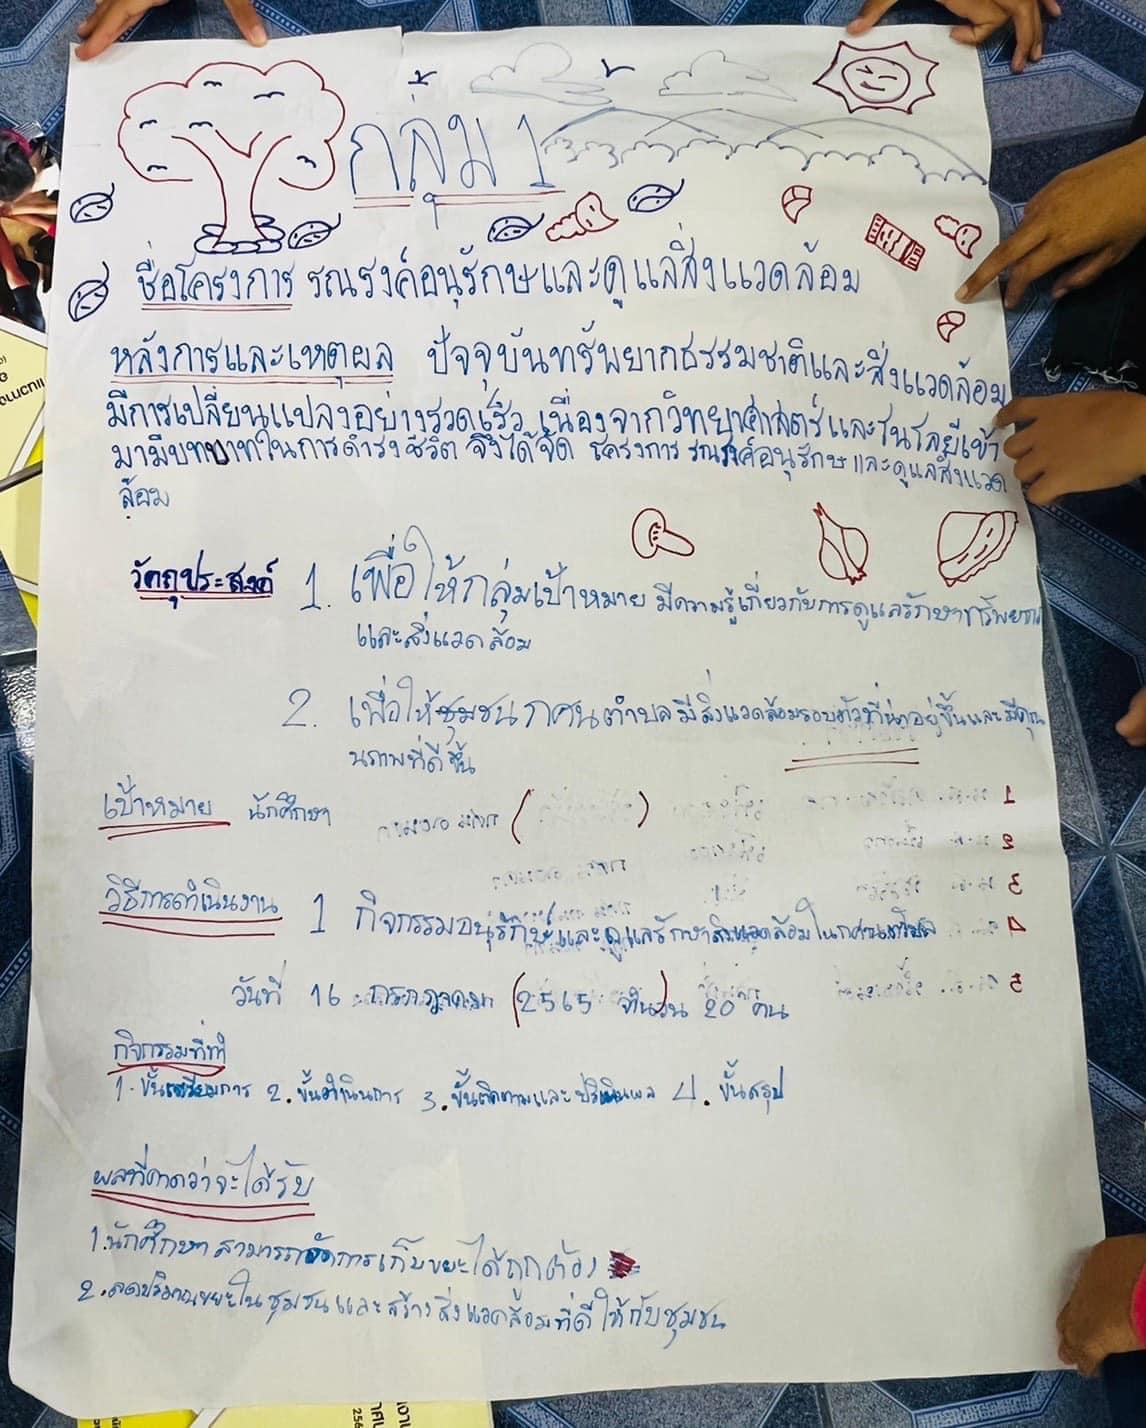 กลุ่ม 1
ชื่อโครงการ รณรงค์อนุรักษและดูแลสิ่งแวดล้อม
หลังการและเหตุผล ปัจจุบันทรัพยากธรรมชาติและสิ่งแวดล้อม
มีการเปลี่ยนแปลงอย่างรวดเร็ว เนื่องจากวิทยาศาสตร์และ เข้า
มามีบทบาทในการดำรงชีวิต จึงได้จัด โครงการ รณรงค์อนุรักษ และดูแลสิ่งแวด
ล้อม
วัตถุประสงค์ 1. เพื่อให้กลุ่มเป้าหมาย มีความรู้เกี่ยวกับการดูแลรักษา
และสิ่งแวดล้อม
2. เพื่อให้ชุมชน ตำบลมีสิ่งแวดล้อมรอบตัวที่น่าอยู่ขึ้นและมีคุณ
นภาพที่ดีขึ้น
เป้าหมาย นักศึกษา
วิธีการดำเนินงาน 1 กิจกรรมอนุรักษ์และดูแลรักษาสิ่งแวดล้อมใน
วันที่ 16 กรกฎาคม 2565 จำนวน 20 คน
กิจกรรมที่ทำ
1. ขั้นเตรียมการ 2. ขั้นดำเนินการ 3. ขั้นติดตามและประเมินผล 4. ขั้นสรุป
ผลที่คาดว่าจะได้รับ
1. นักศึกษา สามารถจัดการเก็บขยะได้ถูกต้อง
2. ลดปริมาณขยะในชุมชนและสร้างสิ่งแวดล้อมที่ดีให้กับชุมชน